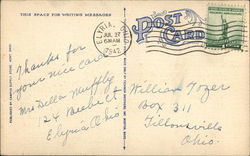 THIS SPACE FOR WRITING MESSAGES
POST CARD
ELYRIA
JUL 27
6 AM
1942
Thanks for
your nice card
Mrs Della Muffly
124 Beebe Ct
Elyria Ohio
William Tozer
Box 311
Tiltonsville
Ohio.